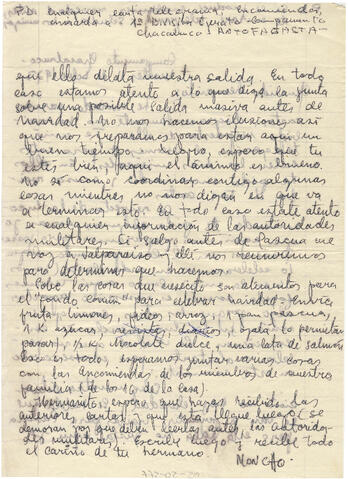 P.D. Cualquier carta, telegrama, encomiendas,
enviarla a 1ª División Ejército - Campamento
Chacabuco - ANTOFAGASTA -
que ellos delata nuestra salida. En todo
caso estamos atento a lo que diga la Junta
sobre una posible salida masiva antes de
Navidad. No nos hacemos ilusiones así
que nos preparamos para estar aquí un
buen tiempo. Belario, espero que tu
estés bien, aquí el ánimo es bueno.
No sé como coordinar contigo algunas
cosas mientras no nos digan en que va
a terminar esto. En todo caso estate atento
a cualquier información de las autoridades
militares. Si salgo antes de Pascua me
voy a Valparaíso y allí nos reunimos
para determinar que hacemos.
Sobre las cosas que necesito son alimentos para
el "fondo común" para celebrar navidad. Envía
fruta, limones, fideos, arroz, 1 pan pascua,
1 K. azúcar, ojalá lo permitan
pasar, 1/2 K. chocolate dulce, una lata de salmón
Eso es todo, esperamos juntar varias cosas
con las encomiendas de los miembros de nuestra
familia (de los 16 de la casa).
Hermanito, espero que hayas recibido las
anteriores cartas y que esta llegue luego (se
demoran por que deben leerlas antes las autorida-
des militares). Escribe luego y recibe todo
el cariño de tu hermano.
MONCHO